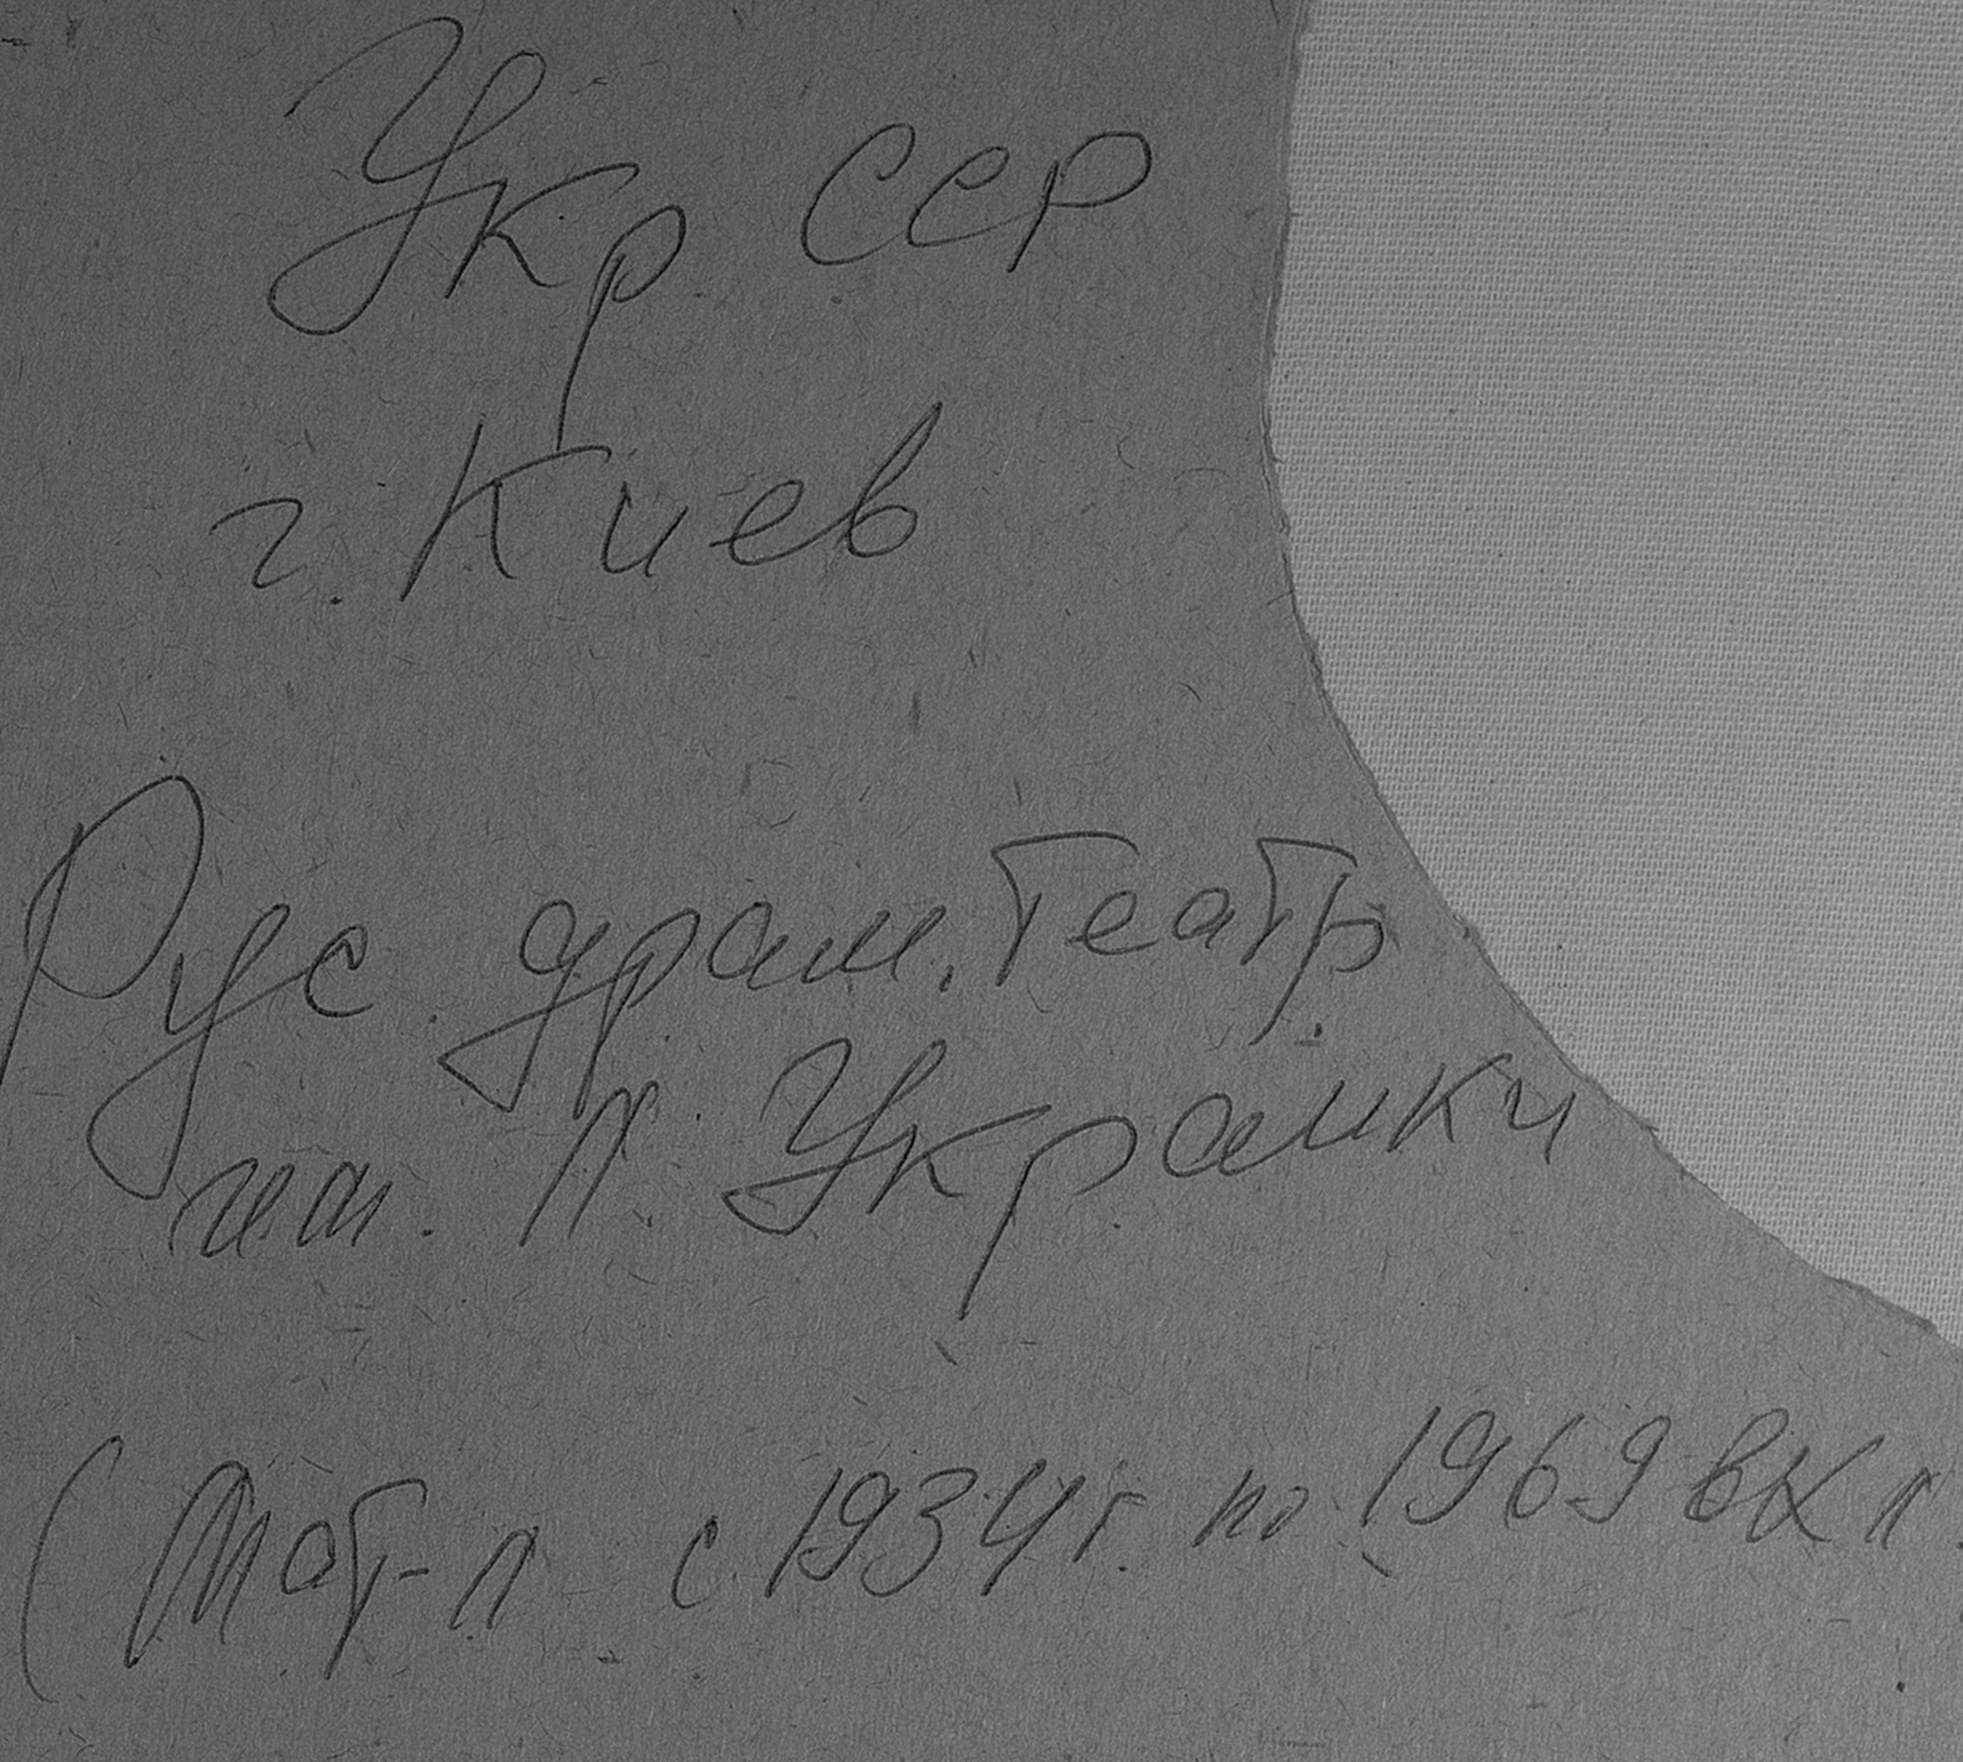 Укр ССР
г. Киев
Рус. драм. театр
им. Л. Украинки
(Мат-л с 1934 г. по 1969 вкл.